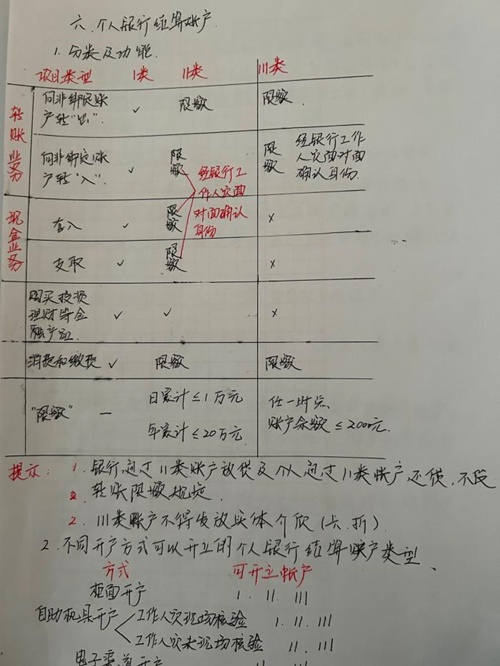 六、个人银行结算账户
1.分类及功能
项目类型 I类 II类 III类
转账业务
向非绑定账户转"出" ✓ 限额 限额
向非绑定账户转"入" ✓ 限额 限额 经银行工作人员面对面确认身份
经银行工作人员面对面确认身份
现金业务
存入 ✓ 限额 ×
支取 ✓ 限额 ×
购买投资理财等金融产品 ✓ ✓ ×
消费和缴费 ✓ 限额 限额
"限额" — 日累计≤1万元 年累计≤20万元 任一时点账户余额≤2000元
提示: 1. 银行通过II类账户放贷及个人通过II类账户还贷,不受
转账限额规定
2. III类账户不得发放实体介质(卡、折)
2.不同开户方式可以开立的个人银行结算账户类型
方式 可开立账户
柜面开户 I. II. III
自助机具开户 工作人员现场核验 I. II. III
工作人员未现场核验 II. III
电子渠道开户